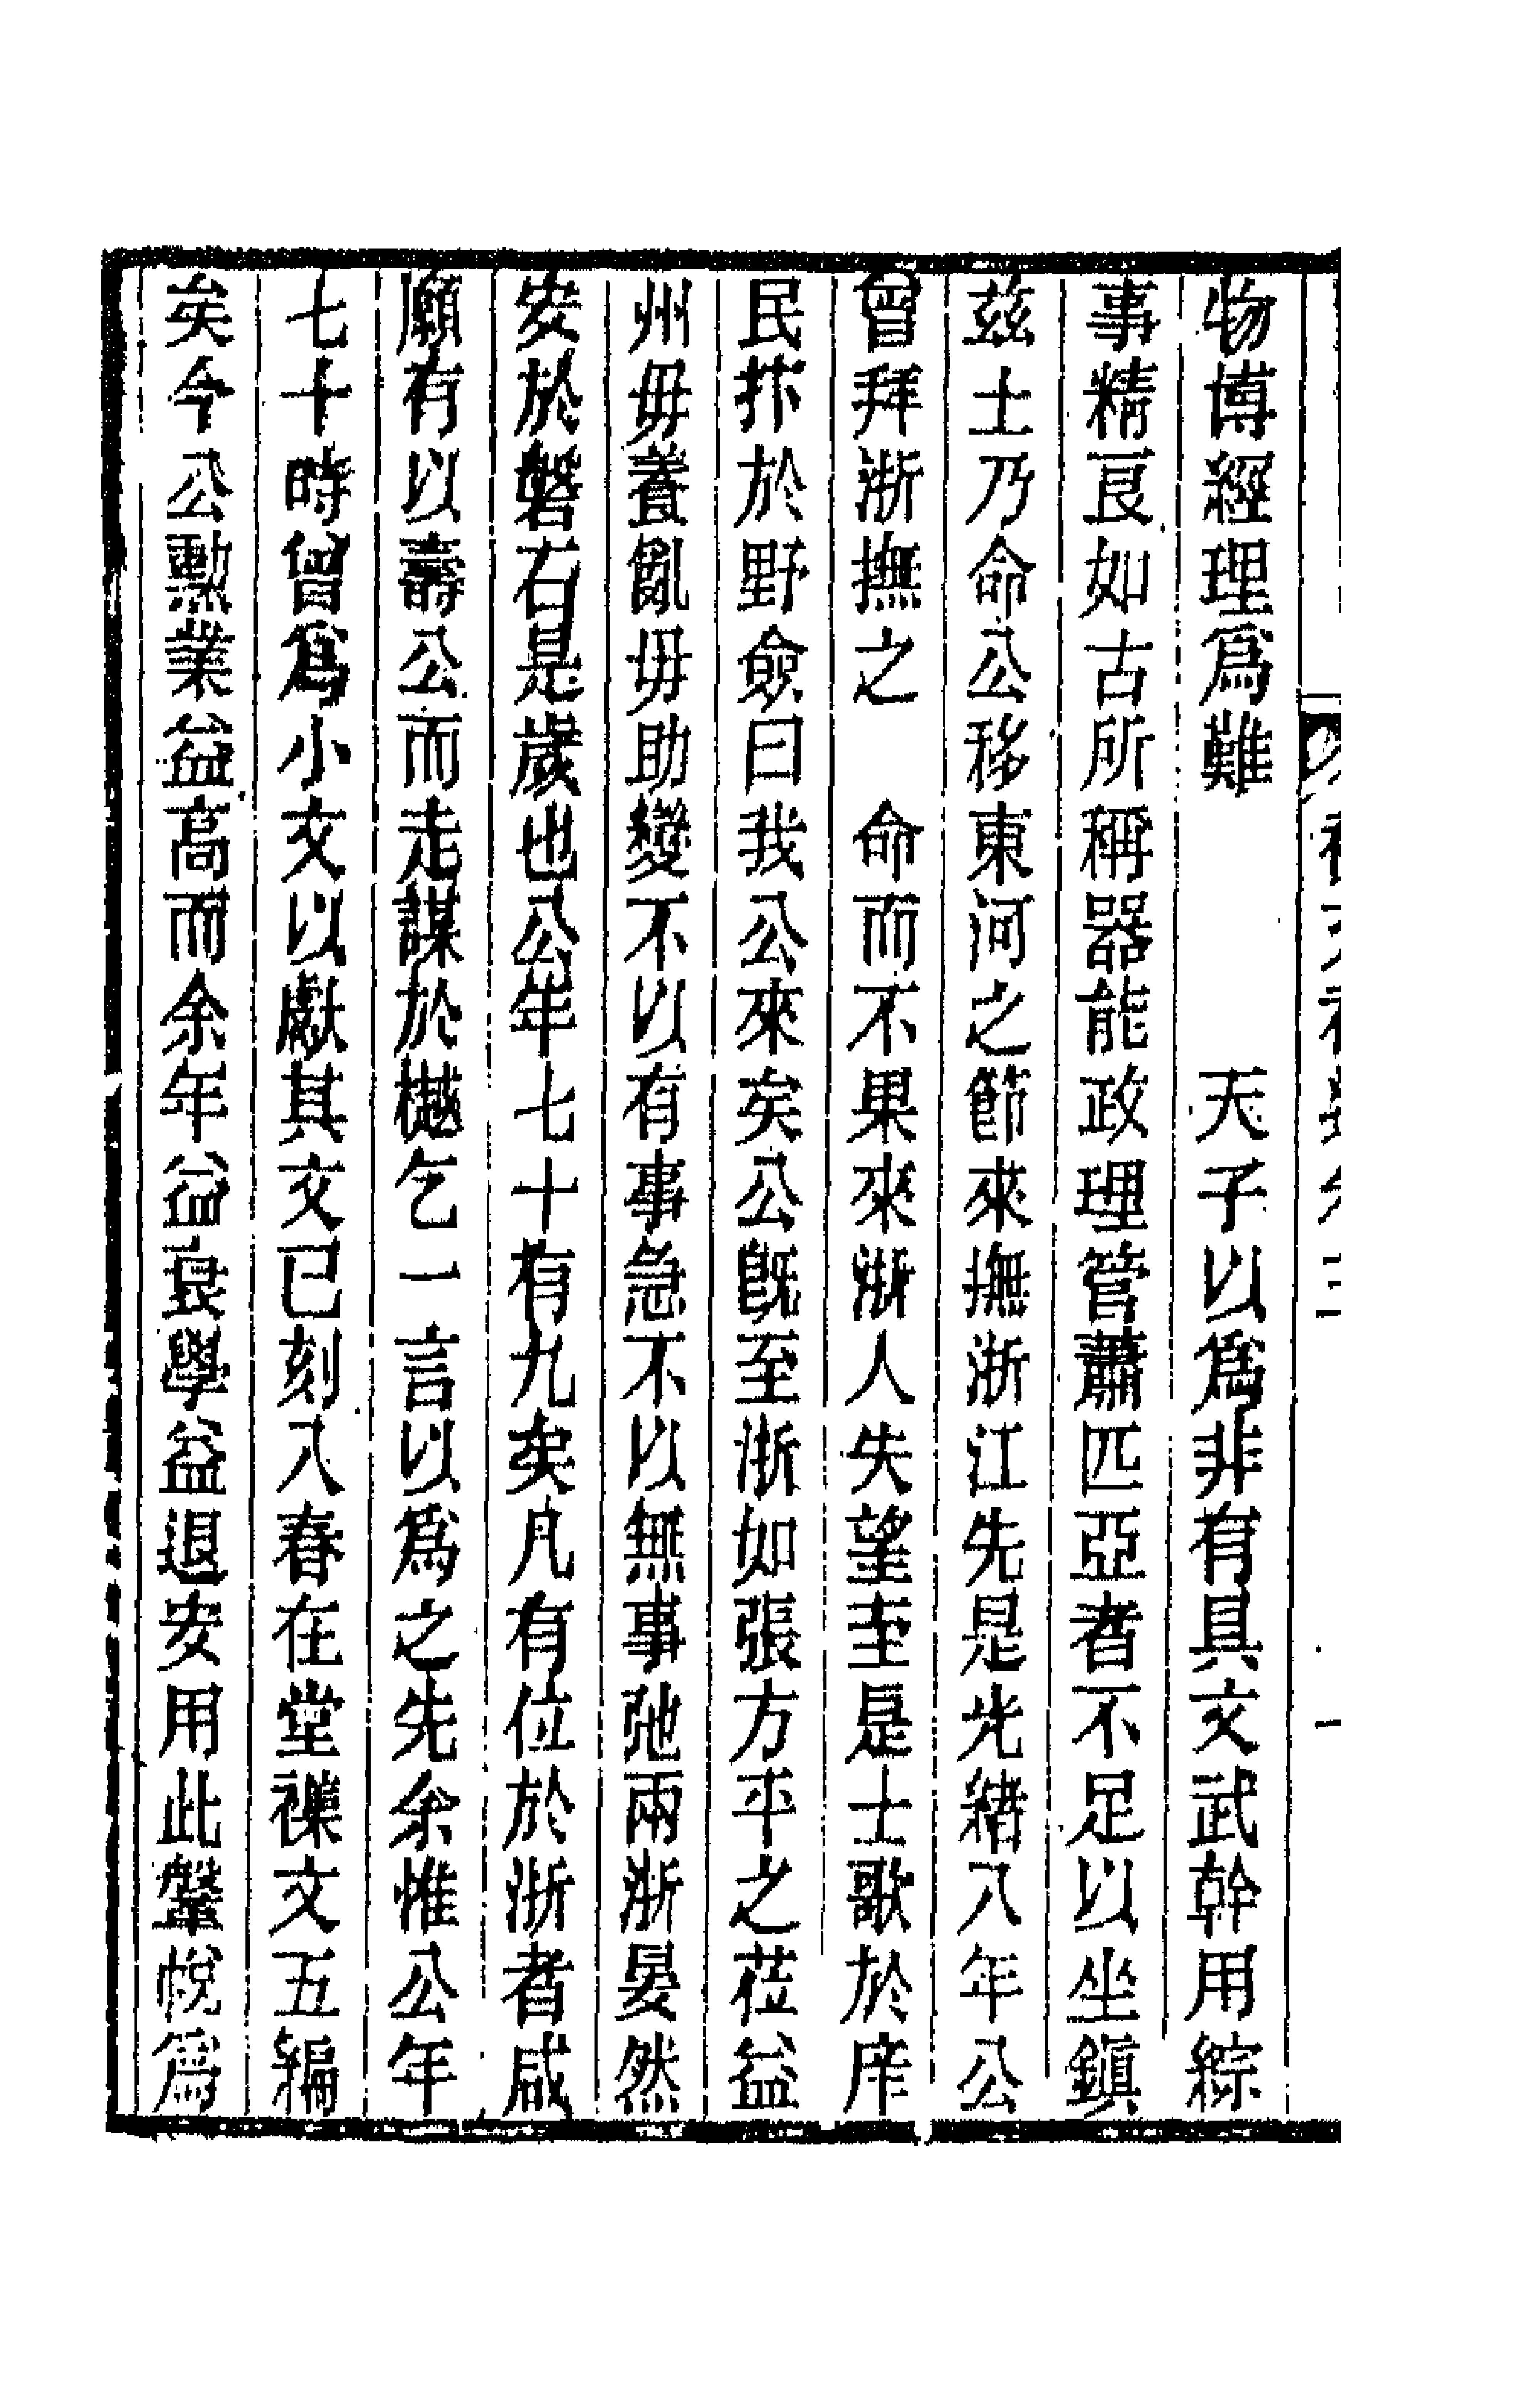 物博經理爲難　　　天子以爲非有具文武幹用綜
事精良如古所稱器能政理管蕭匹亞者不足以坐鎭
茲土乃命公移東河之節來撫浙江先是光緒八年公
曾拜浙撫之　命而不果來浙人失望至是士歌於庠
民抃於野僉曰我公來矣公旣至浙如張方平之莅益
州毋養亂毋助變不以有事急不以無事弛兩浙晏然
安於磐石是歲也公年七十有九矣凡有位於浙者咸
願有以壽公而走謀於樾乞一言以爲之先余惟公年
七十時曾爲小文以獻其文已刻入春在堂襍文五編
矣今公勳業益高而余年益衰學益退安用此鞶帨爲